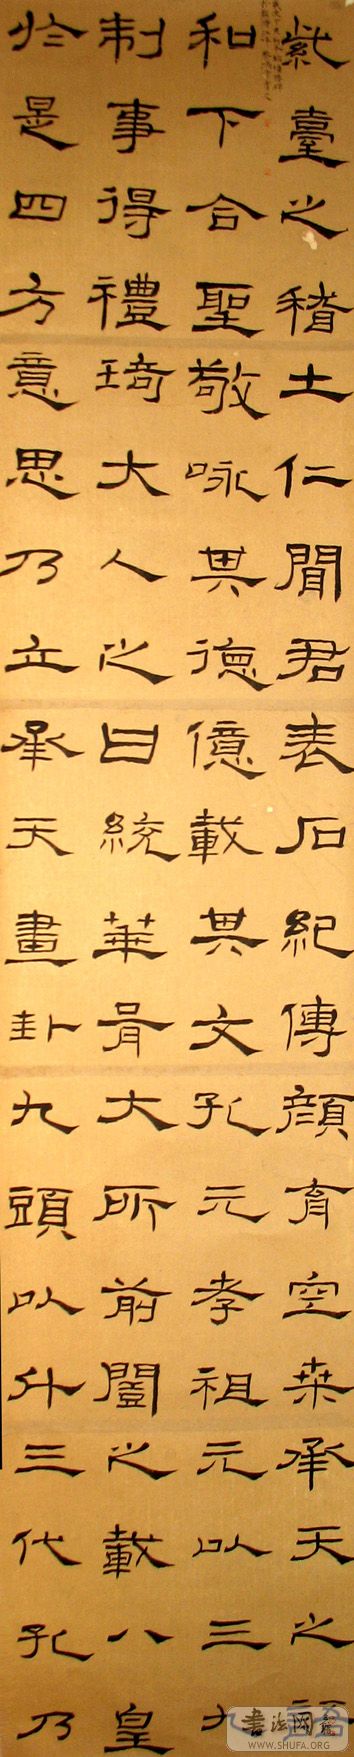 紫臺之稽土仁聞君表石紀傳顏育空桒承天之
和下合聖敬咏其德億載其文孔元孝祖元以三
制事得禮琦大人之日統華胥大所前闓之載八皇
於是四方意思乃立承天畫卦九頭以升三代孔乃
WWW.SHUFA.ORG